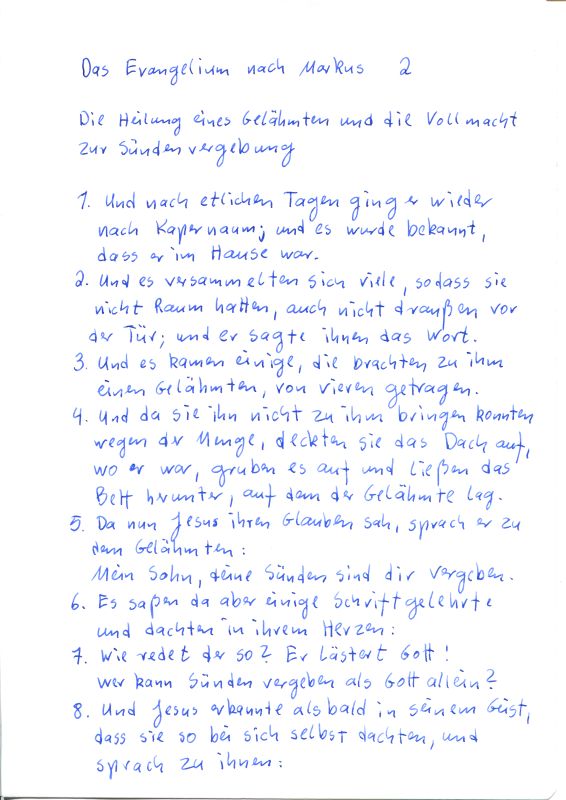 Das Evangelium nach Markus 2
Die Heilung eines Gelähmten und die Vollmacht
zur Sündenvergebung
1. Und nach etlichen Tagen ging er wieder
nach Kapernaum; und es wurde bekannt,
dass er im Hause war.
2. Und es versammelten sich viele, sodass sie
nicht Raum hatten, auch nicht draußen vor
der Tür; und er sagte ihnen das Wort.
3. Und es kamen einige, die brachten zu ihm
einen Gelähmten, von vieren getragen.
4. Und da sie ihn nicht zu ihm bringen konnten
wegen der Menge, deckten sie das Dach auf,
wo er war, gruben es auf und ließen das
Bett herunter, auf dem der Gelähmte lag.
5. Da nun Jesus ihren Glauben sah, sprach er zu
dem Gelähmten:
Mein Sohn, deine Sünden sind dir vergeben.
6. Es saßen da aber einige Schriftgelehrte
und dachten in ihrem Herzen:
7. Wie redet der so? Er lästert Gott!
Wer kann Sünden vergeben als Gott allein?
8. Und Jesus erkannte alsbald in seinem Geist,
dass sie so bei sich selbst dachten, und
sprach zu ihnen: